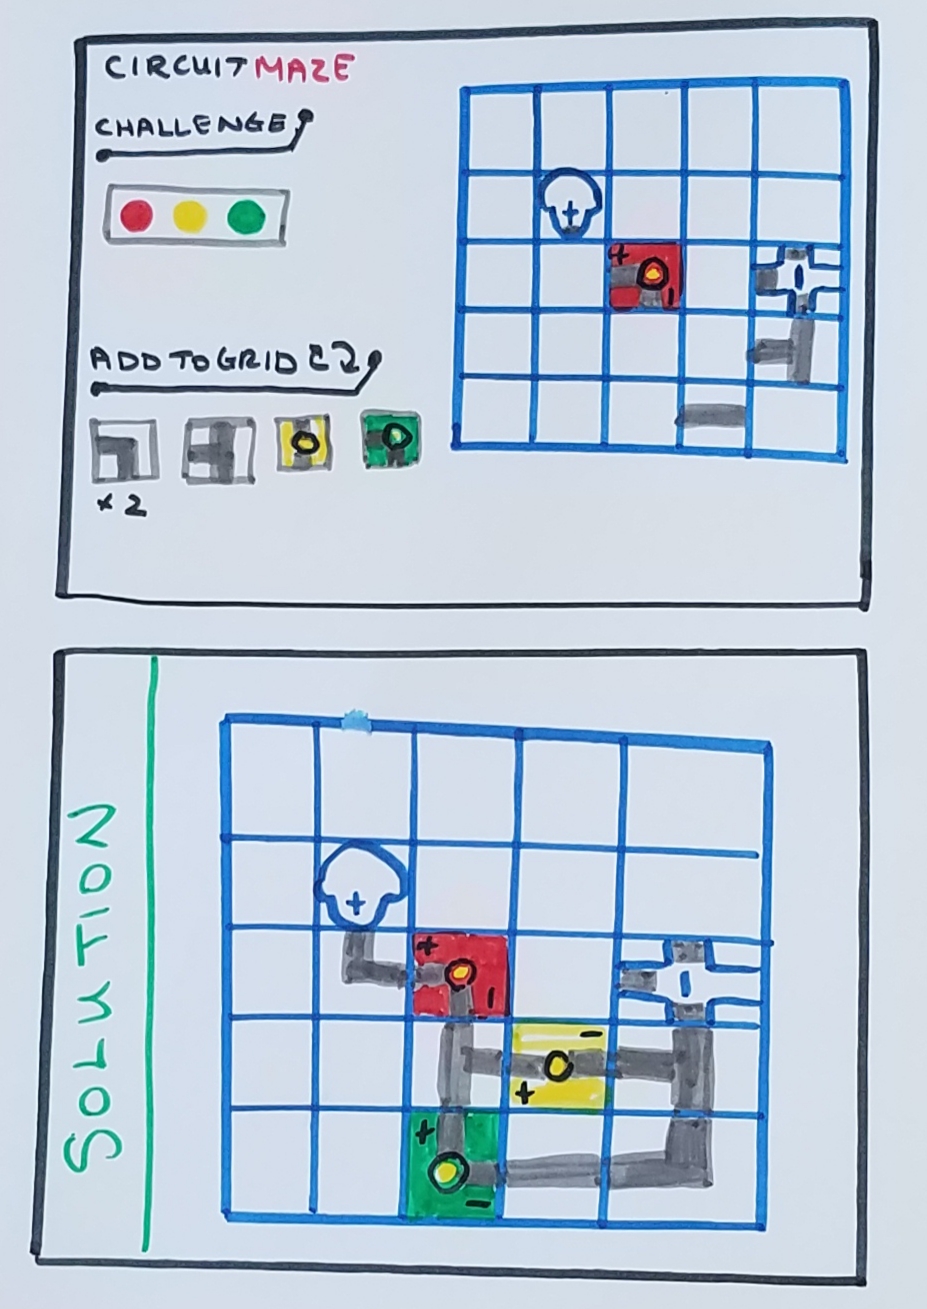 CIRCUIT MAZE
CHALLENGE
+
+
-
-
ADD TO GRID
x 2
SOLUTION
+
+
-
-
-
+
+
-